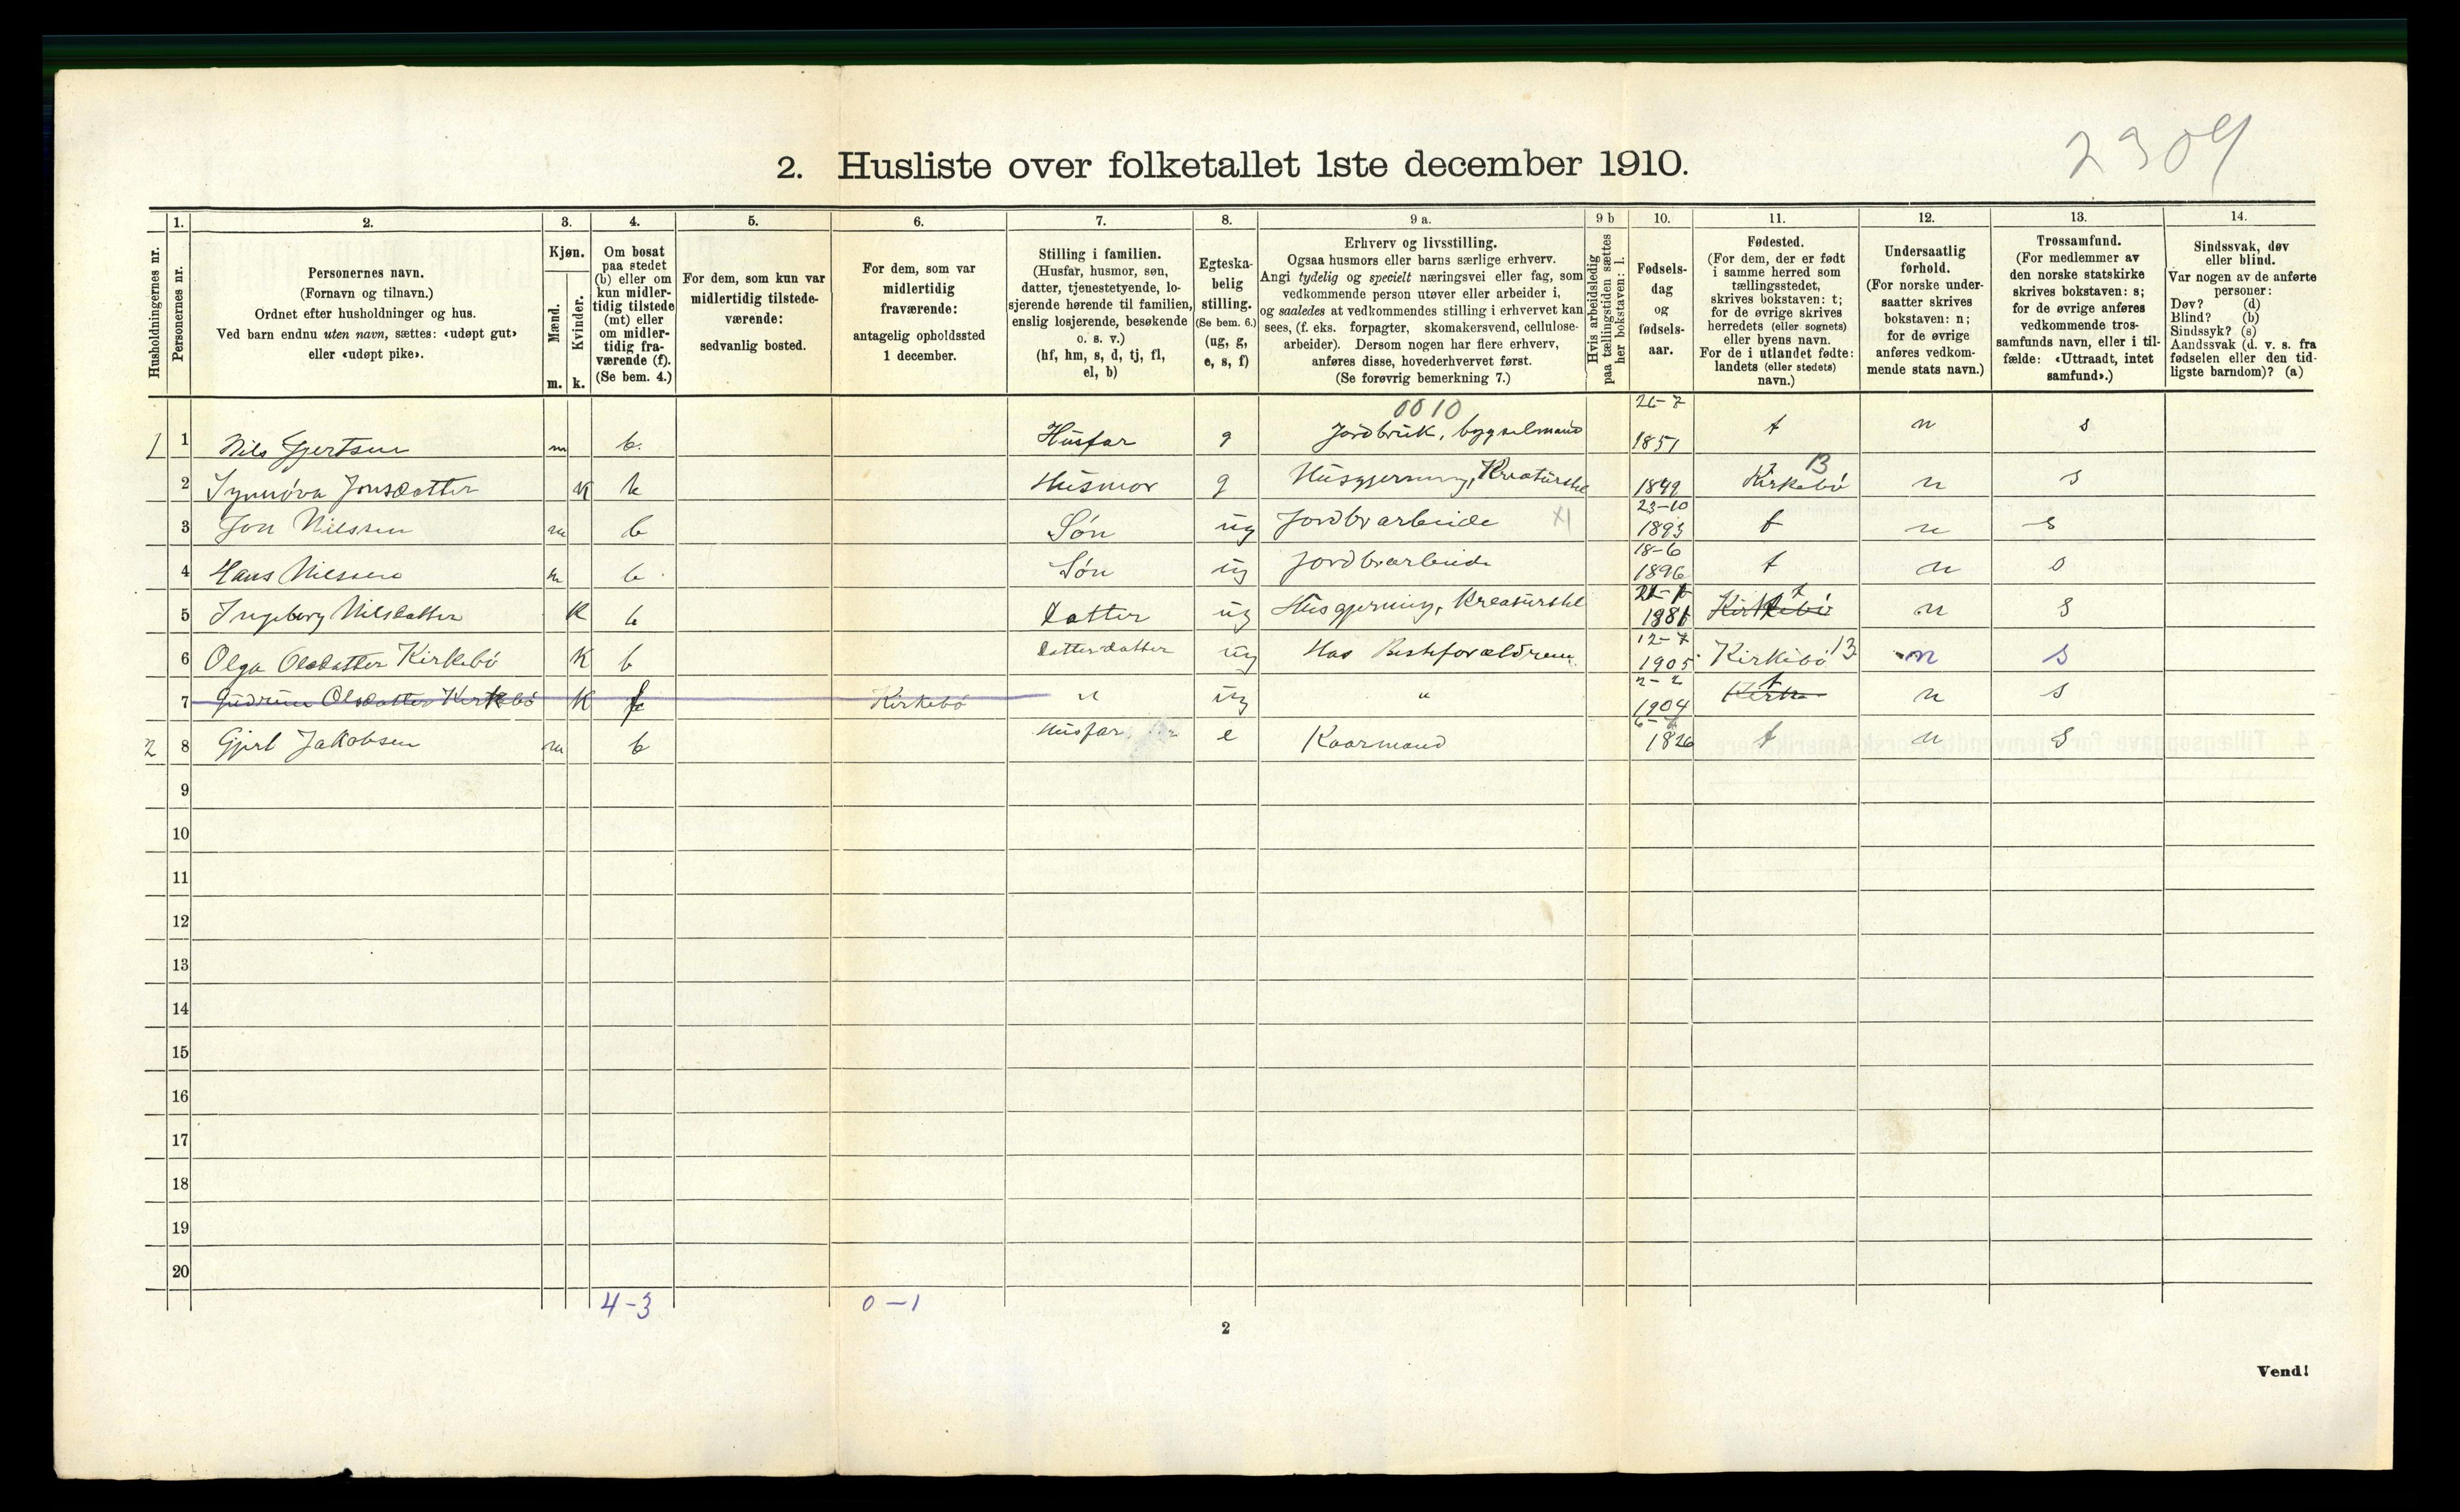 2309
2. Husliste over folketallet 1ste december 1910.
Husholdningernes nr.
1. Personernes nr.
2. Personernes navn.
(Fornavn og tilnavn.)
Ordnet efter husholdninger og hus.
Ved barn endnu uten navn, sættes: «udøpt gut»
eller «udøpt pike».
3. Kjøn.
Mænd. m.
Kvinder. k.
4. Om bosat
paa stedet
(b) eller om
kun midler-
tidig tilstede
(mt) eller
om midler-
tidig fra-
værende (f).
(Se bem. 4.)
5. For dem, som kun var
midlertidig tilstede-
værende:
sedvanlig bosted.
6. For dem, som var
midlertidig
fraværende:
antagelig opholdssted
1 december.
7. Stilling i familien.
(Husfar, husmor, søn,
datter, tjenestetyende, lo-
sjerende hørende til familien,
enslig losjerende, besøkende
o. s. v.)
(hf, hm, s, d, tj, fl,
el, b)
8. Egteska-
belig
stilling.
(Se bem. 6.)
(ug, g,
e, s, f)
9 a. Erhverv og livsstilling.
Ogsaa husmors eller barns særlige erhverv.
Angi tydelig og specielt næringsvei eller fag, som
vedkommende person utøver eller arbeider i,
og saaledes at vedkommendes stilling i erhvervet kan
sees, (f. eks. forpagter, skomakersvend, cellulose-
arbeider). Dersom nogen har flere erhverv,
anføres disse, hovederhvervet først.
(Se forøvrig bemerkning 7.)
9 b Hvis arbeidsledig
paa tællingstiden sættes
her bokstaven: l.
10. Fødsels-
dag
og
fødsels-
aar.
11. Fødested.
(For dem, der er født
i samme herred som
tællingsstedet,
skrives bokstaven: t;
for de øvrige skrives
herredets (eller sognets)
eller byens navn.
For de i utlandet fødte:
landets (eller stedets)
navn.)
12. Undersaatlig
forhold.
(For norske under-
saatter skrives
bokstaven: n;
for de øvrige
anføres vedkom-
mende stats navn.)
13. Trossamfund.
(For medlemmer av
den norske statskirke
skrives bokstaven: s;
for de øvrige anføres
vedkommende tros-
samfunds navn, eller i til-
fælde: «Uttraadt, intet
samfund».)
14. Sindssvak, døv
eller blind.
Var nogen av de anførte
personer:
Døv? (d)
Blind? (b)
Sindssyk? (s)
Aandssvak (d. v. s. fra
fødselen eller den tid-
ligste barndom)? (a)
0010 26-7
1 1 Nils Gjertsen m b. Husfar g Jordbruk, bygselmand 1851 t n s
2 Synnöva Jonsdatter K b Husmor g Husgjerning, Kreaturstel 1849 Kirkebö 13 n s
23-10
3 Jon Nilssen m b Sön ug Jordbrarbeide XI 1893 t n s
18-6
4 Hans Nilssen m b Sön ug Jordbrarbeide 1896 t n s
5 Ingeborg Nilsdatter K b Datter ug Husgjerning, Kreaturstel 1881 Kirkebö t n s
12-7
6 Olga Olsdatter Kirkebö K b Datterdatter ug Hos Besteforældrene 1905 Kirkebö 13 n s
2-2
7 Gudrun Olsdatter Kirkebö K f Kirkebö " ug " 1904 Kirke t n s
2 8 Gjert Jakobsen m b Husfar e Kaarmand 1826 t n s
9
10
11
12
13
14
15
16
17
18
19
20
4-3 0-1
2
Vend!